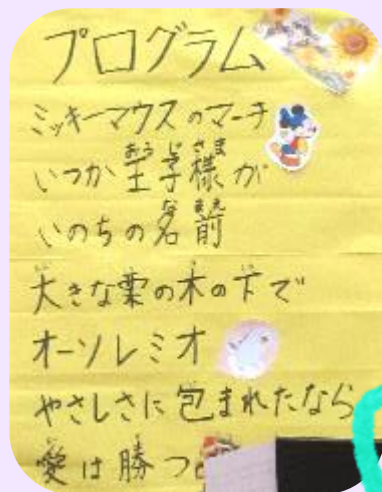 プログラム
ミッキーマウスのマーチ
いつか王子様が
いのちの名前
大きな栗の木の下で
オーソレミオ
やさしさに包まれたなら
愛は勝つ